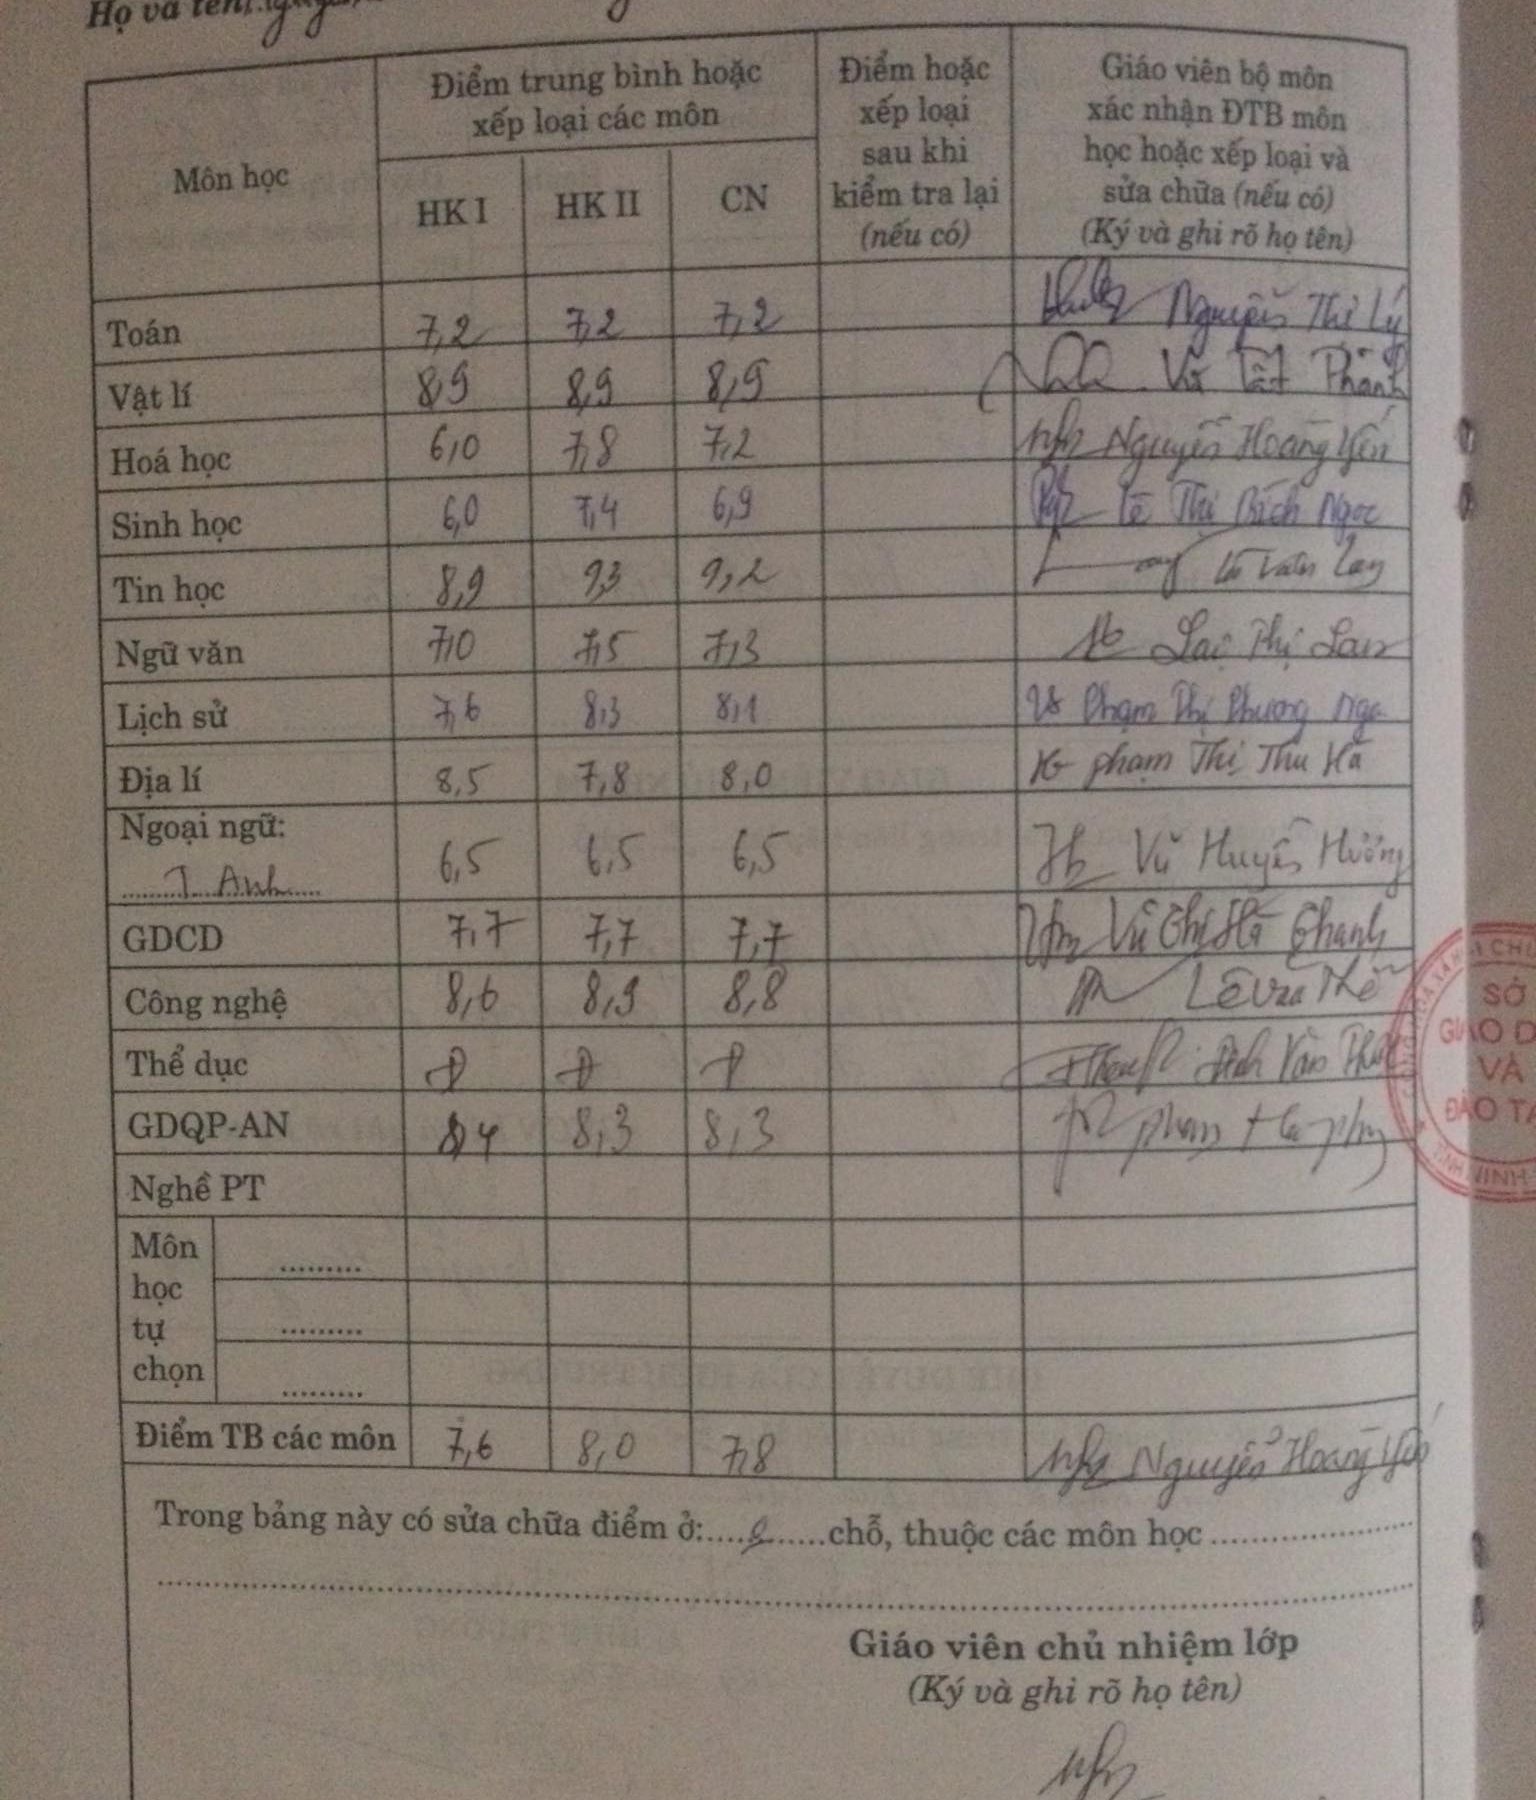 Họ và tên:
Môn học
Điểm trung bình hoặc
xếp loại các môn
HK I HK II CN
Điểm hoặc
xếp loại
sau khi
kiểm tra lại
(nếu có)
Giáo viên bộ môn
xác nhận ĐTB môn
học hoặc xếp loại và
sửa chữa (nếu có)
(Ký và ghi rõ họ tên)
Toán 7,2 7,2 7,2 Nguyễn Thị Lý
Vật lí 8,9 8,9 8,9 Vũ Tất Thành
Hoá học 6,0 7,8 7,2 Nguyễn Hoàng Yến
Sinh học 6,0 7,4 6,9 Lê Thị Bích Ngọc
Tin học 8,9 9,3 9,2
Ngữ văn 7,0 7,5 7,3 Lại Thị Lan
Lịch sử 7,6 8,3 8,1 Phạm Thị Phương Nga
Địa lí 8,5 7,8 8,0 Phạm Thị Thu Hà
Ngoại ngữ:
T. Anh 6,5 6,5 6,5 Vũ Huyền Hương
GDCD 7,7 7,7 7,7 Vũ Thị Hà Thanh
Công nghệ 8,6 8,9 8,8 Lê Văn Thế
Thể dục Đ Đ Đ Đinh Văn
GDQP-AN 8,4 8,3 8,3
Nghề PT
Môn
học
tự
chọn
Điểm TB các môn 7,6 8,0 7,8 Nguyễn Hoàng Yến
Trong bảng này có sửa chữa điểm ở: chỗ, thuộc các môn học
Giáo viên chủ nhiệm lớp
(Ký và ghi rõ họ tên)
SỞ
GIÁO D
VÀ
ĐÀO TẠ